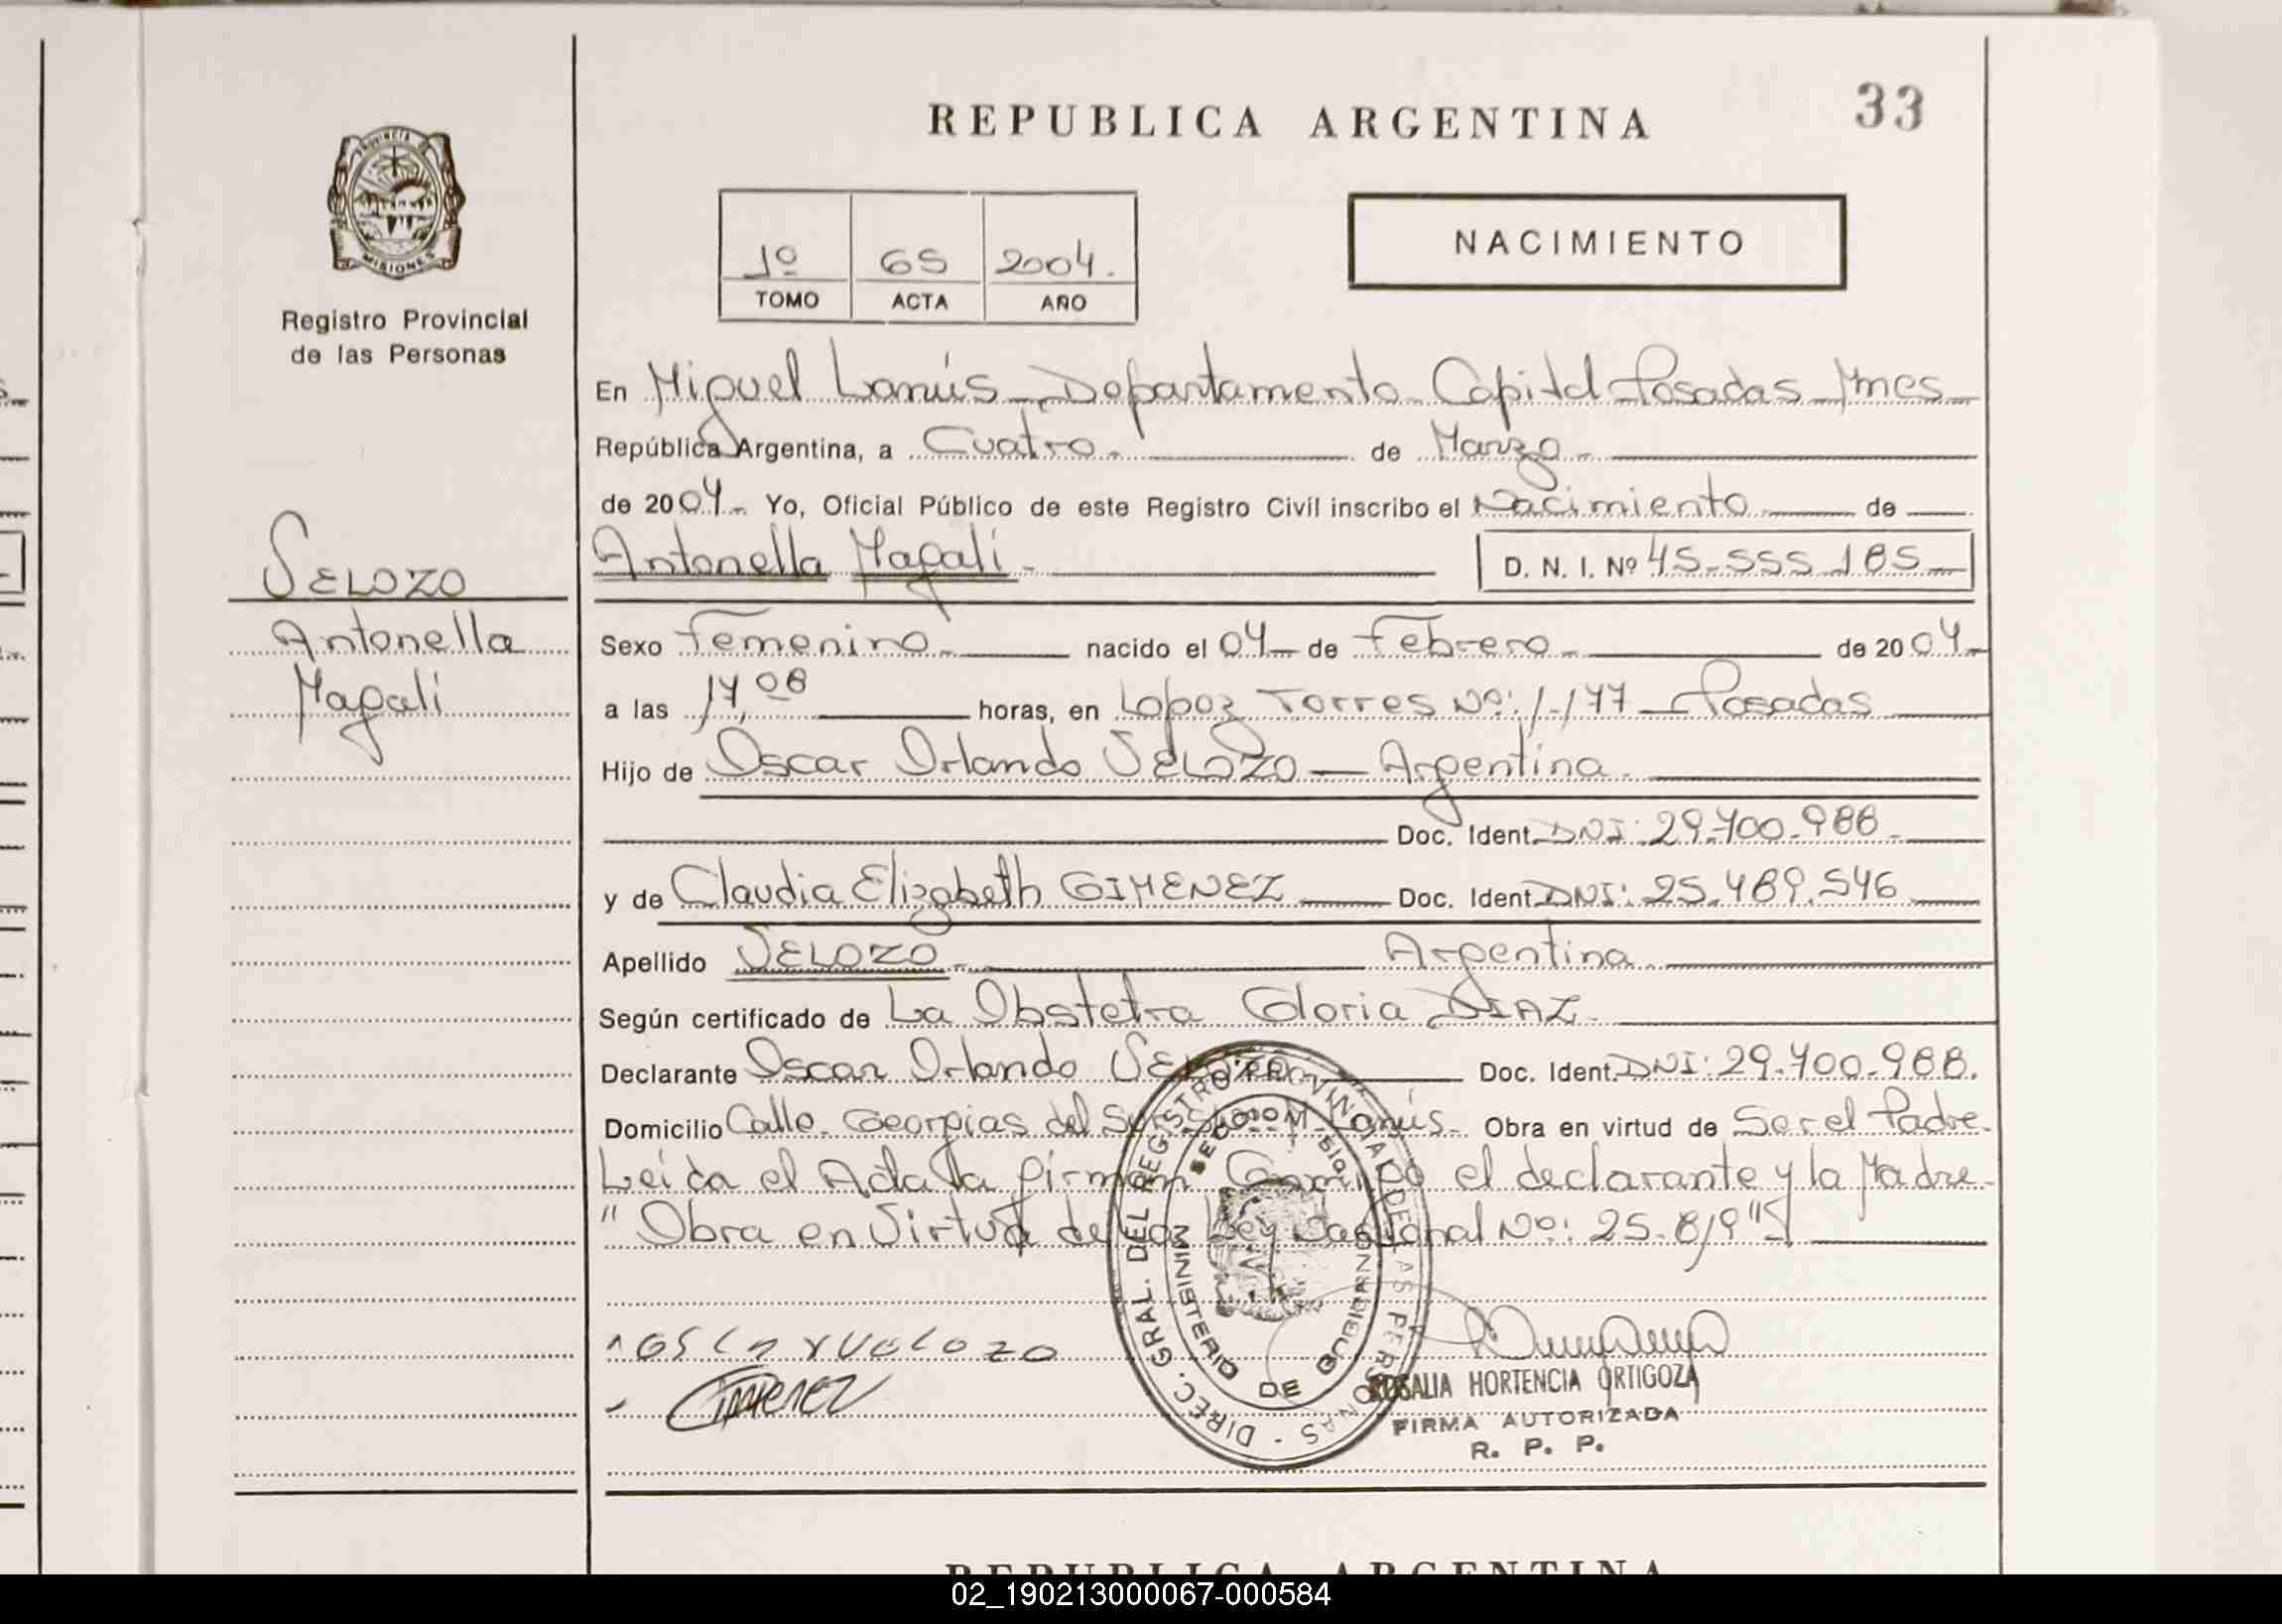 REPUBLICA ARGENTINA
33
PROVINCIA DE
MISIONES
Registro Provincial
de las Personas
1º 65 2004.
TOMO ACTA AÑO
NACIMIENTO
En Miguel Lanús - Departamento Capital Posadas Mnes
República Argentina, a Cuatro de Marzo
de 2004 Yo, Oficial Público de este Registro Civil inscribo el Nacimiento de
VELOZO
Antonella
Magalí
Antonella Magalí
D. N. I. Nº 45-555 185
Sexo Femenino nacido el 04 de Febrero de 2004
a las horas, en Lopez Torres Nº: 1.177 - Posadas
Hijo de Oscar Orlando VELOZO - Argentina
Doc. Ident. DNI: 29.700.988
y de Claudia Elizabeth GIMENEZ Doc. Ident. DNI: 25.489.546
Apellido VELOZO Argentina
Según certificado de La Obstetra Gloria DIAZ
Declarante Oscar Orlando VELOZO Doc. Ident. DNI: 29.700.988.
Domicilio Calle Georgias del Sur M. Lanús. Obra en virtud de Ser el Padre.
Leída el Acta la firman Conmigo el declarante y la Madre.
"Obra en Virtud de la Ley Nacional Nº: 25.819"
DIREC. GRAL. DEL REGISTRO PROVINCIAL DE LAS PERSONAS
MINISTERIO DE GOBIERNO
VELOZO
Gimenez
ROSALIA HORTENCIA ORTIGOZA
FIRMA AUTORIZADA
R. P. P.
REPUBLICA ARGENTINA
02_190213000067-000584